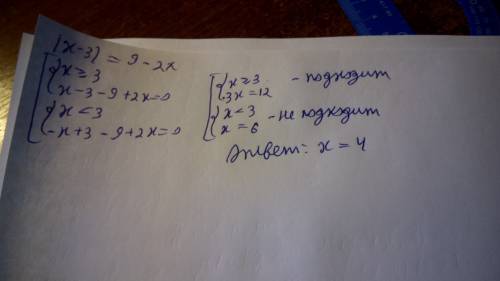 |x-3| = 9-2x
x≥3
x-3-9+2x=0
x<3
-x+3-9+2x=0
x≥3 - подходит
3x=12
x<3 - не подходит
x=6
Ответ: x=4